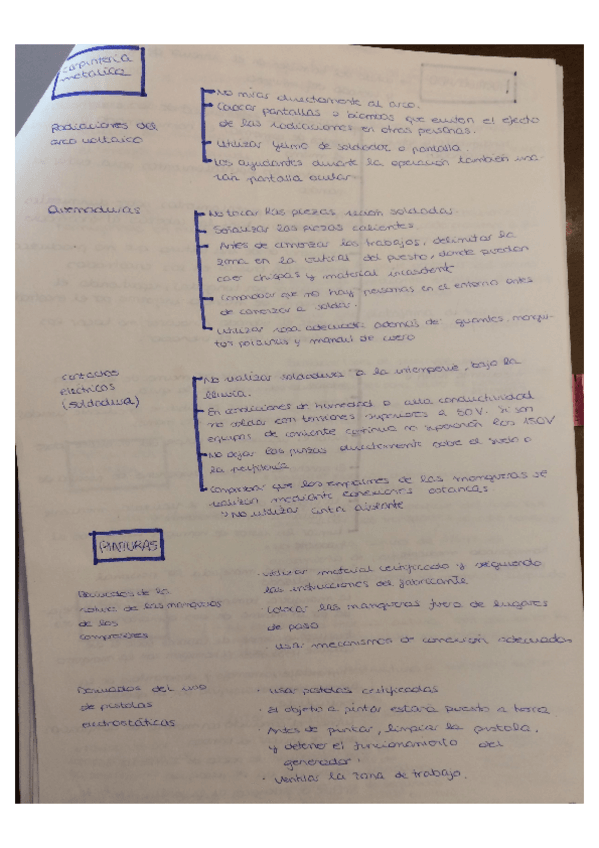 carpintería
metálica
Radiaciones del
arco voltaico
No mirar directamente al arco.
Colocar pantallas o biombos que eviten el efecto
de las radiaciones en otras personas.
Utilizar yelmo de soldador o pantalla.
Los ayudantes durante la operación también usa-
rán pantalla ocular.
Quemaduras
No tocar las piezas recién soldadas.
Señalizar las piezas calientes.
Antes de comenzar los trabajos, delimitar la
zona en la vertical del puesto, donde puedan
caer chispas y material incandente
Comprobar que no hay personas en el entorno antes
de comenzar a soldar.
Utilizar ropa adecuada además de: guantes, mangui-
tos polainas y mandil de cuero
contactos
eléctricos
(soldadura)
No realizar soldadura a la intemperie, bajo la
lluvia.
En condiciones de humedad o alta conductividad
no soldar con tensiones superiores a 50V. Si son
equipos de corriente continua no superarán los 150V
No dejar las pinzas directamente sobre el suelo o
la perfilería
Comprobar que los empalmes de las mangueras se
realizan mediante conexiones estancas
→ No utilizar cinta aislante
PINTURAS
Derivados de la
rotura de las mangueras
de los
compresores
· utilizar material certificado y siguiendo
las instrucciones del fabricante
colocar las mangueras fuera de lugares
de paso
· usar mecanismos de conexión adecuados
Derivados del uso
de pistolas
electrostáticas
· usar pistolas certificadas
· El objeto a pintar estará puesto a tierra
· Antes de pintar, limpiar la pistola,
y detener el funcionamiento del
generador.
· Ventilar la zona de trabajo.